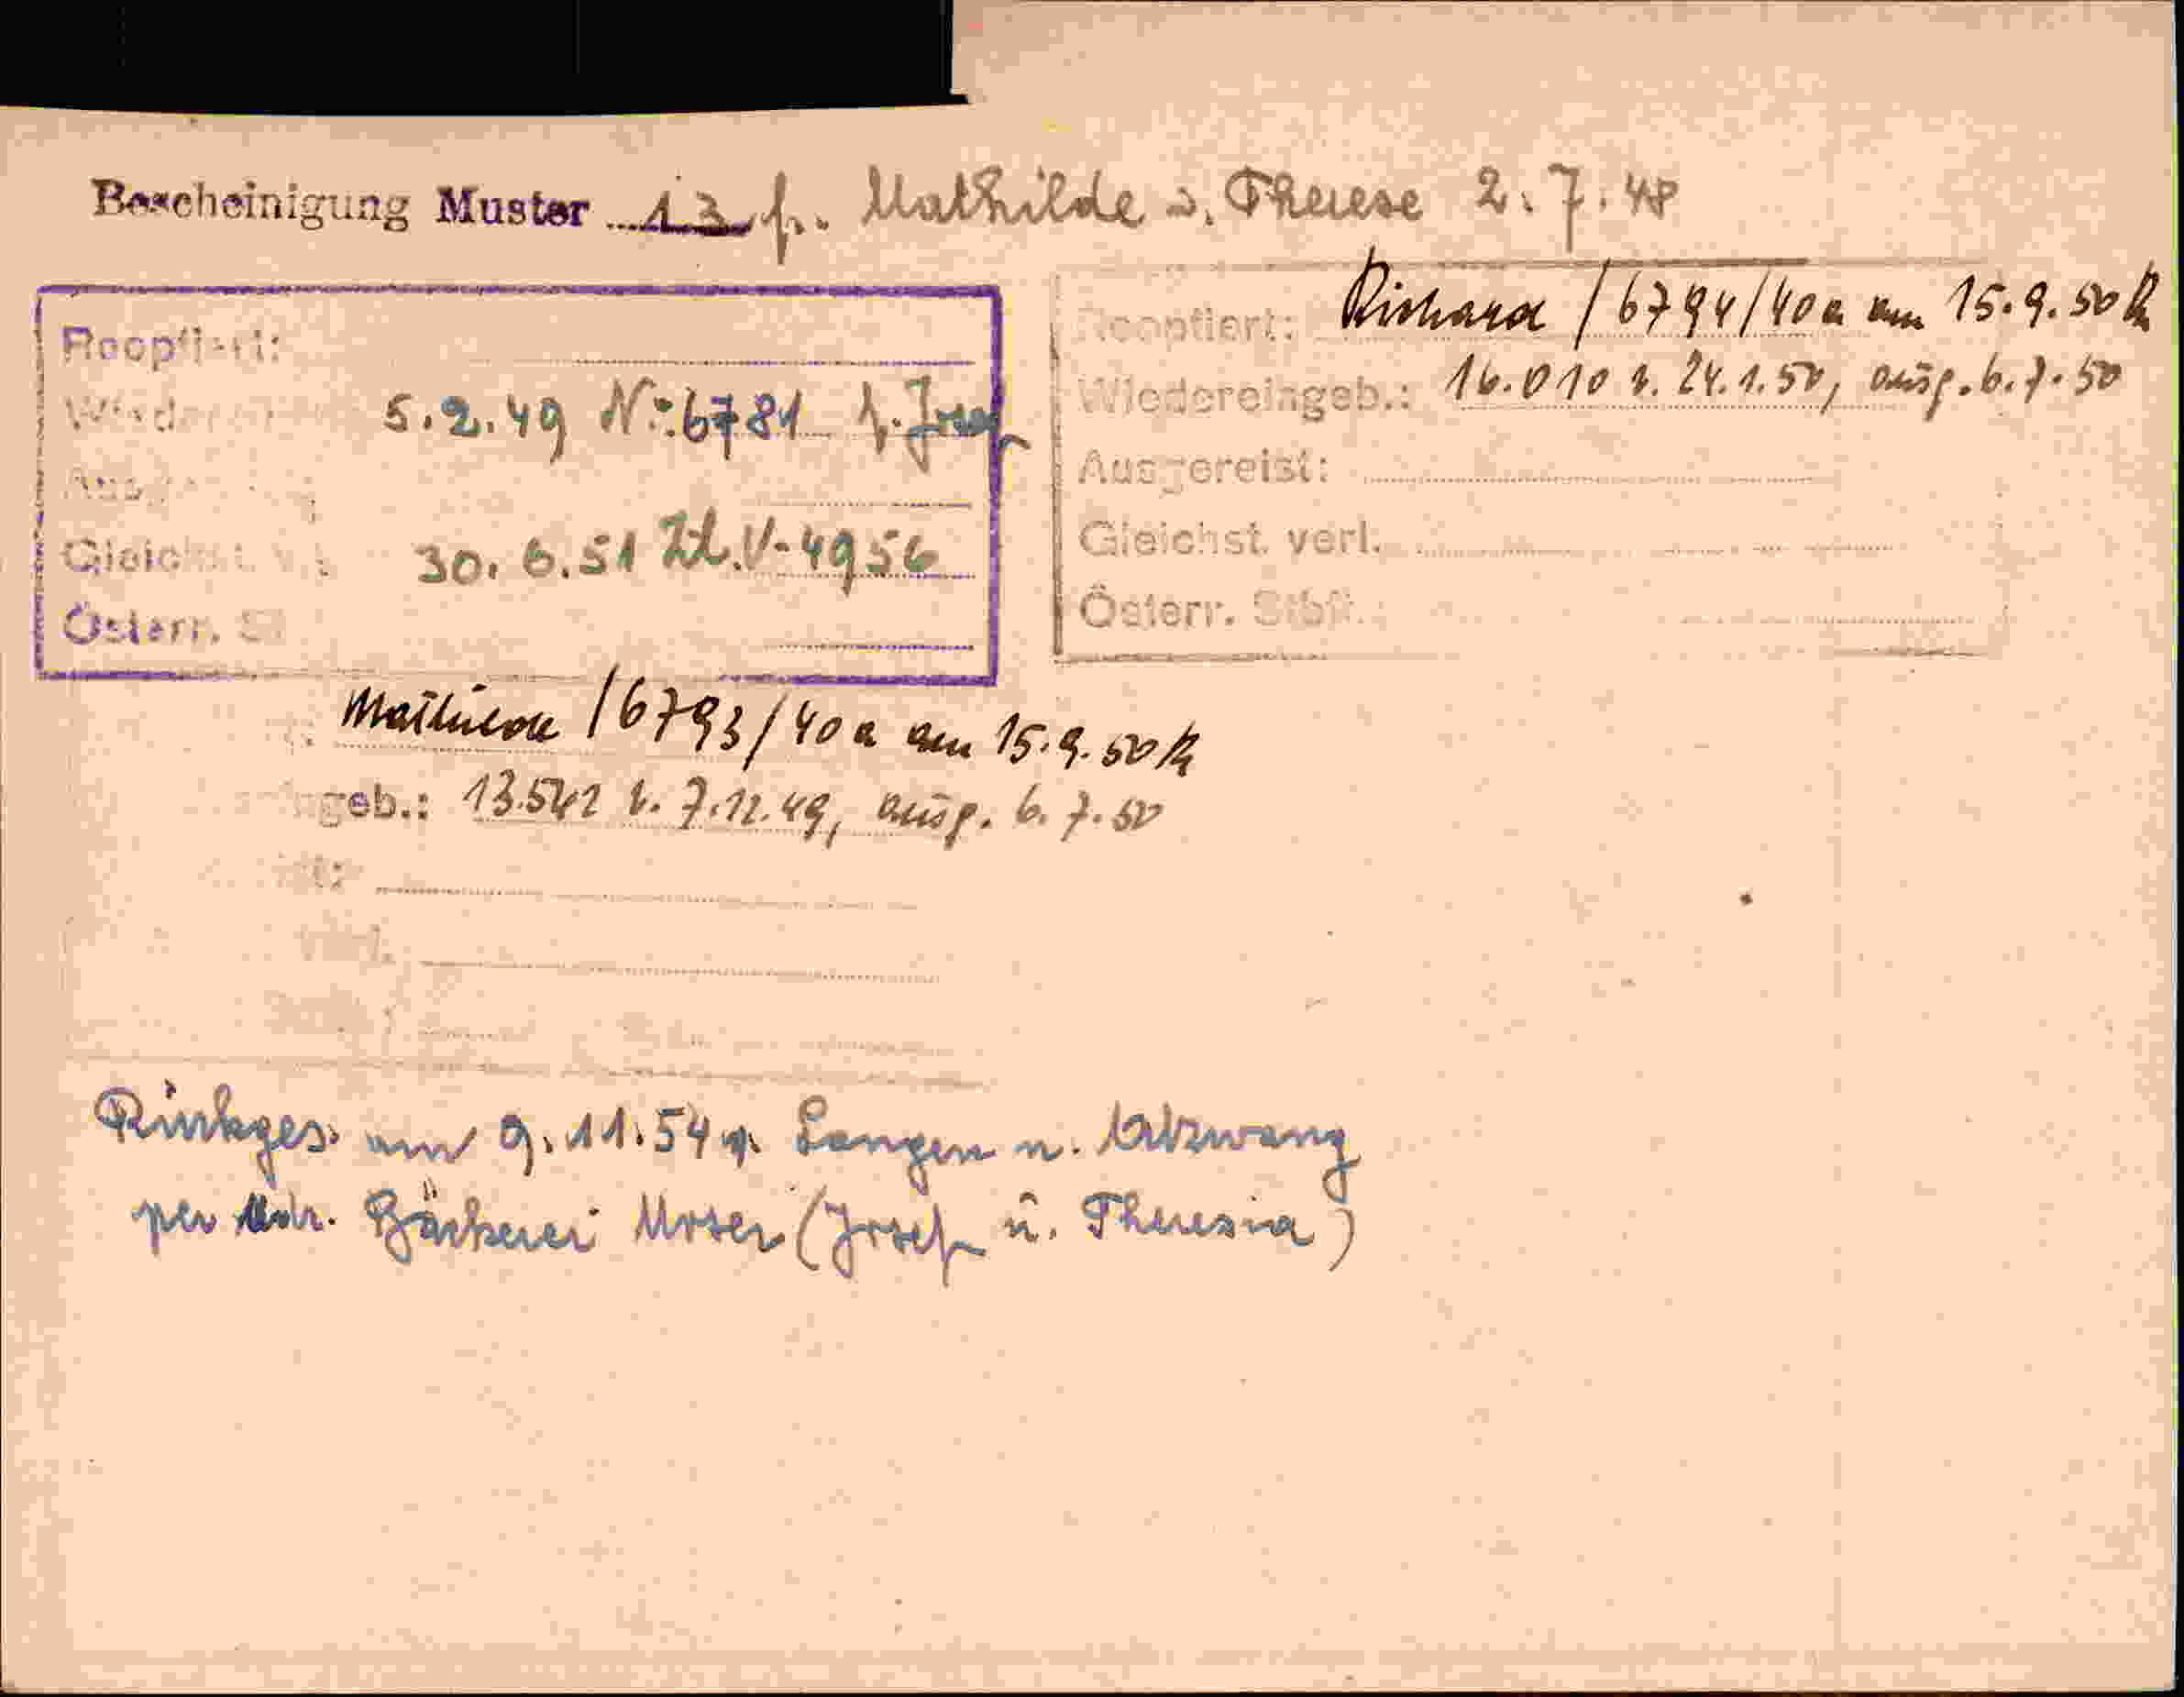 Bescheinigung Muster 13 f. Mathilde u. Therese 2.7.48
Reoptiert:
5.2.49 Nr: 6781 f. Josef
30.6.51 Zl. V-4956
Österr. St
Reoptiert: Richard /6794/40a am 15.9.50
Wiedereingeb.: 16.010 v. 24.1.50, ausg. 6.7.50
Ausgereist:
Gleichst. verl.
Österr. Stbft.
Mathilde /6793/40a am 15.9.50
geb.: 13.542 v. 7.12.49, ausg. 6.7.50
Rückges. am 9.11.54 v. Langen n. Atzwang
per Adr. Bäckerei Moser (Josef u. Theresia)